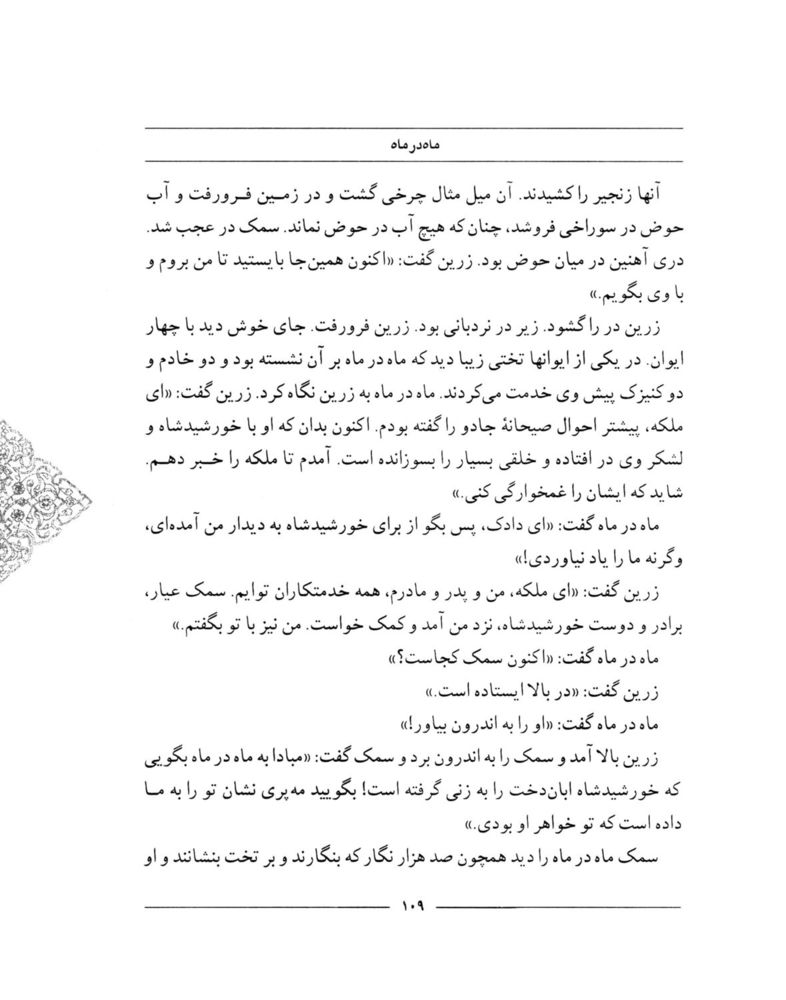 ماه در ماه
آنها زنجیر را کشیدند. آن میل مثال چرخی گشت و در زمین فرورفت و آب
حوض در سوراخی فروشد، چنان‌که هیچ آب در حوض نماند. سمک در عجب شد.
دری آهنین در میان حوض بود. زرین گفت: «اکنون همین‌جا بایستید تا من بروم و
با وی بگویم.»
زرین در را گشود. زیر در نردبانی بود. زرین فرورفت. جای خوش دید با چهار
ایوان. در یکی از ایوانها تختی زیبا دید که ماه در ماه بر آن نشسته بود و دو خادم و
دو کنیزک پیش وی خدمت می‌کردند. ماه در ماه به زرین نگاه کرد. زرین گفت: «ای
ملکه، پیشتر احوال صیحانهٔ جادو را گفته بودم. اکنون بدان که او با خورشیدشاه و
لشکر وی در افتاده و خلقی بسیار را بسوزانده است. آمدم تا ملکه را خبر دهم.
شاید که ایشان را غمخوارگی کنی.»
ماه در ماه گفت: «ای دادک، پس بگو از برای خورشیدشاه به دیدار من آمده‌ای،
وگرنه ما را یاد نیاوردی!»
زرین گفت: «ای ملکه، من و پدر و مادرم، همه خدمتکاران توایم. سمک عیار،
برادر و دوست خورشیدشاه، نزد من آمد و کمک خواست. من نیز با تو بگفتم.»
ماه در ماه گفت: «اکنون سمک کجاست؟»
زرین گفت: «در بالا ایستاده است.»
ماه در ماه گفت: «او را به اندرون بیاور!»
زرین بالا آمد و سمک را به اندرون برد و سمک گفت: «مبادا به ماه در ماه بگویی
که خورشیدشاه ابان‌دخت را به زنی گرفته است! بگویید مه‌پری نشان تو را به ما
داده است که تو خواهر او بودی.»
سمک ماه در ماه را دید همچون صد هزار نگار که بنگارند و بر تخت بنشانند و او
۱۰۹